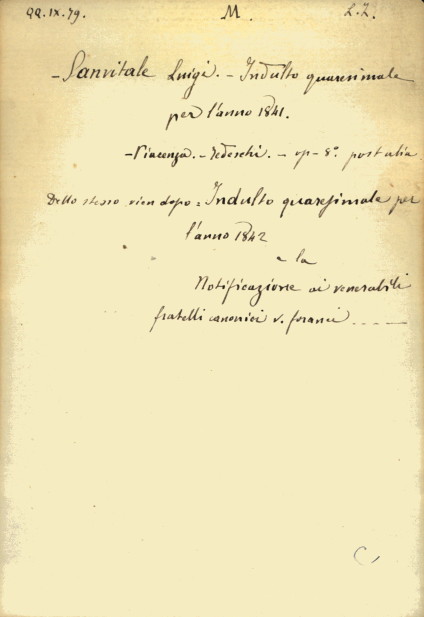 QQ.IX.79. M. L.L.
- Sanvitale Luigi. - Indulto quaresimale
per l'anno 1841.
- Piacenza. - Tedeschi. - op - 8° post alia.
Dello stesso vien dopo = Indulto quaresimale per
l'anno 1842
e la
Notificazione ai venerabili
fratelli canonici v. foranei